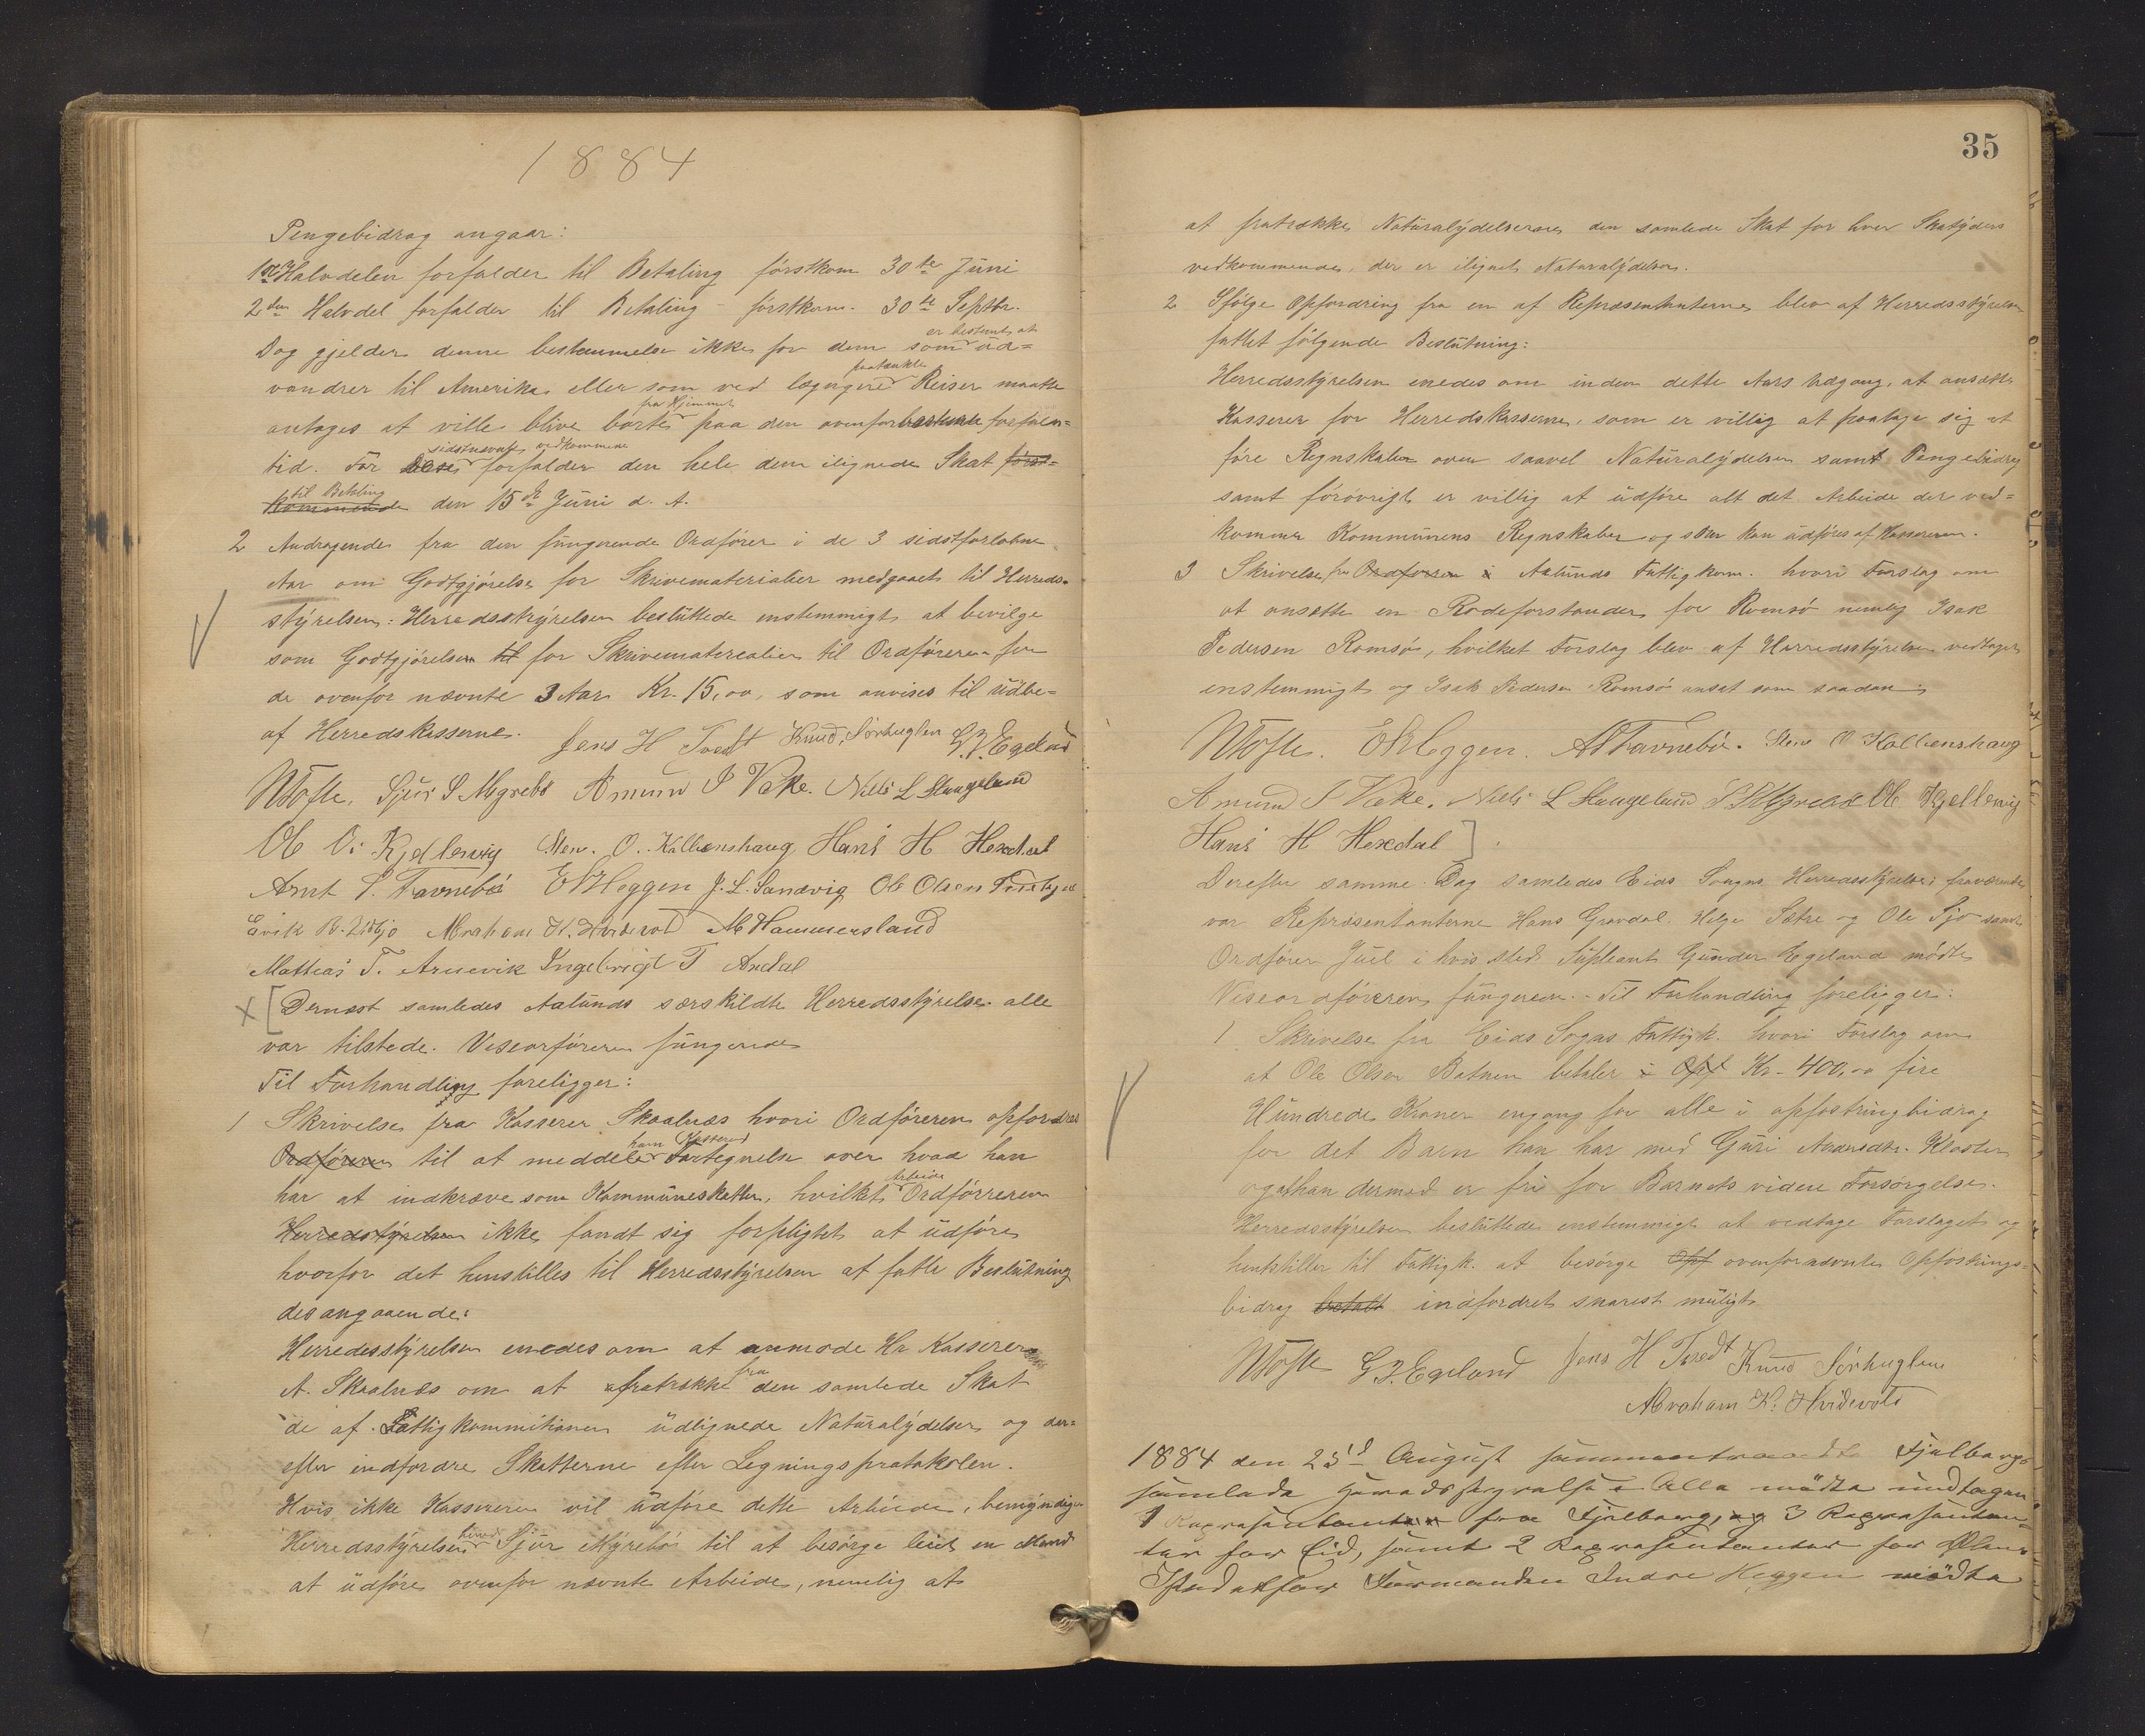 1884
Pengebidrag angaar:
1ste Halvdelen forfalder til Betaling förstkom 30te Juni
2den Halvdel forfalder til Betaling förstkom. 30te Septbr.
er bestemt at
Dog gjelder denne bestemmelse ikke for dem som ud=
paatænkte
vandrer til Amerika eller som ved længere Reiser maatte
fra Hjemmet
antages at ville blive borte paa den ovenfor bestemte forfalds=
sidstnævnte vedkommende
tid. For disse forfalder den hele dem ilignede Skat först=
til Betaling
kommende den 15de Juni d. A.
2 Andragende fra den fungerende Ordförer i de 3 sidstforløbne
Aar om Godtgjörelse for Skrivematerialier medgaaet til Herreds=
styrelsen: Herredsstyrelsen besluttede enstemmigt at bevilge
som Godtgjörelsen til for Skrivematerealier til Ordföreren for
de ovenfor nævnte 3 Aar Kr. 15,00, som anvises til Udbe=
af Herredskasserne. Jens H Tvedt Knud Sörhuglen G. J. Egeland
NTofte. Sjur S Mÿrebö Amund I Vake. Nills L Haugeland
Ole O. Kjellesvig Sten. O. Kalleenshaug Hans H Hexdal
Arnt S. Favnebö E N Heggen J. L. Sandvig Ole Olsen
Erik B. Abraham K. Hvidevold M Hammersland
Mattias T. Arnevik Ingebrigt T Axdal
[Dernæst samledes Aalunds særskildte Herredsstyrelse alle
var tilstede. Viseorföreren fungerede
Til Forhandling foreligger:
1 Skrivelse fra Kasserer Skaalnæs hvori Ordföreren opfordres
ham Kassered
Ordföreren til at meddele Fortegnelse over hvad han
Arbeide
har at indkræve som Kommüneskatter, hvilket Ordförreren
Herredsstyrelsen ikke fandt sig forpligtet at üdföre
hvorfor det henstilles til Herredsstyrelsen at fatte Beslütning
desangaaende:
Herredesstyrelsen enedes om at anmode Hr Kasserer
fra
A. Skaalnæs om at afratrække den samlede Skat
de af Fattigkommitionen üdlignede Naturalydelser og der=
efter indfordre Skatterne efter Legningsprotokolen.
Hvis ikke Kassereren vil üdföre dette Arbeide, bemyndiger
Herredsstyrelsen Sjur Myrebö til at besörge leiet en Mand
at üdföre ovenfor nævnte Arbeide, nemlig at
35
at fratrække Naturalydelserne den samlede Skat for hver Skatyders
vedkommende, der er ilignet Naturalydelser.
2 Ifölge Opfordring fra en af Repræsentanterne blev af Herredsstyrelsen
fattet fölgende Beslutning:
Herredsstyrelsen enedes om inden dette Aars Udgang, at ansætte
Kasserer for Herredskasserne, som er villig at paatage sig at
före Regnskaber over saavel Naturalydelsen samt Pengebidrag
samt förövrigt er villig at üdföre alt det Arbeide der ved=
kommer Kommünens Regnskaber og som kan üdföres af Kassereren.
3 Skrivelse fra Ordföreren i Aalunds Fattigkom. hvori Forslag om
at ansætte en Rodeforstander for Romsö nemlig Isak
Pedersen Romsö, hvilket Forslag blev af Herredsstyrelsen vedtaget
enstemmigt og Isak Pedersen Romsö ansat som saadan.
NTofte. E N Heggen. A S Favnebö. Sten O Kalleenshaug
Amund I Vake. Nills L Haugeland S S Myrebö Ole Kjellesvig
Hans H Hexdal]
Derefter samme Dag samledes Eids Sogns Herredsstyrelse; fraværende
var Repræsentanterne Hans Gravdal Helge Sætre og Ole Tjo samt
Ordförer Juel i hvis sted Supleant Günder Egeland mödte
Viseordföreren füngerer. Til Forhandling foreligger:
1 Skrivelse fra Eids Sogns Fattigk. hvori Forslag om
at Ole Olsen Batnen betaler i Opf Kr. 400,00 fire
Hündrede Kroner engang for alle i opfostringbidrag
for det Barn han har med Güri Klosten
og at han dermed er fri for Barnets videre Forsörgelse.
Herredsstyrelsen beslüttede enstemmigt at vedtage Forslaget og
henstiller til Fattigk. at besörge Opf ovenfornævnte Opfostrings=
bidrag betalt indfordret snarest müligt
NTofte G J Egeland Jens H Tvedt Knud Sörhuglen
Abraham K. Hvidevold
1884 den 25de August sammentraadte Fjelbergs
samlede Herredsstyrelse. Alle mödte undtagen
1 Repræsentanter fra Fjelberg, og 3 Repræsentan=
ter for Eid, samt 2 Repræsentanter for Ølen.
Istedetfor Formanden Indre Heggen mödte